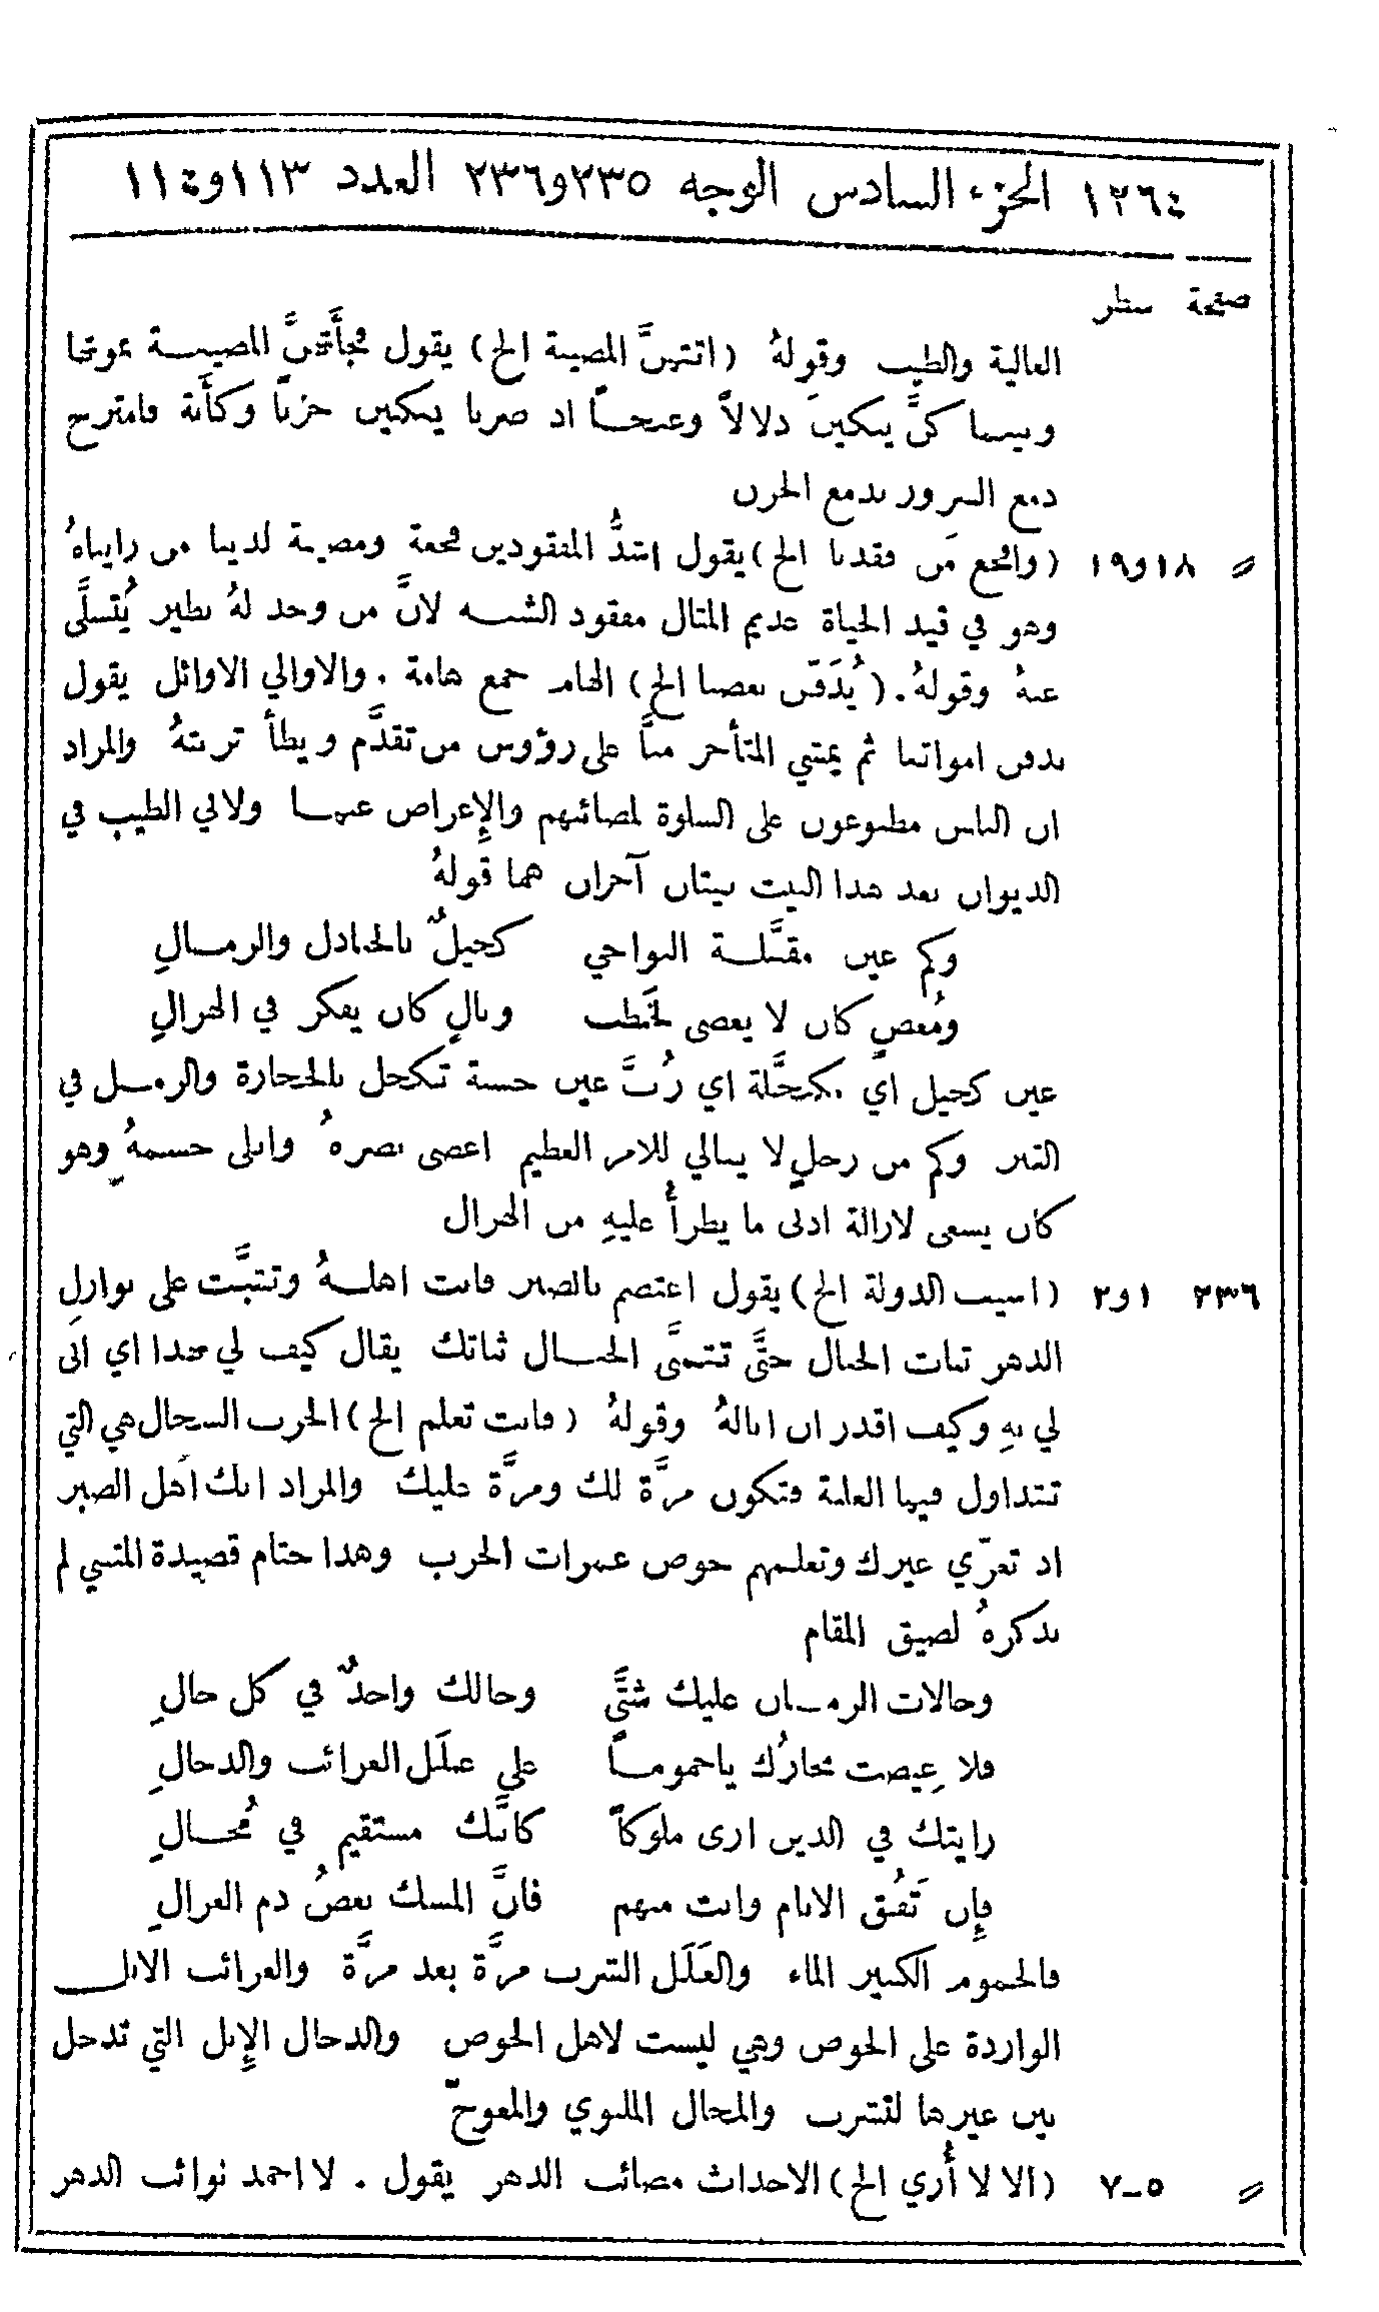 ١٢٦٤ الجزء السادس الوجه ٢٣٥و٢٣٦ العدد ١١٣و١١٤
صفحة سطر
العالية والطيب وقولهُ (اتتهنَّ المصيبة الخ) يقول فجأَتهنَّ المصيبـة بموتها
وبينما كنَّ يبكينَ دلالاً وعجبـاً اذ صرنا يبكين حزناً وكآبة فامتزج
دمع السرور بدمع الحزن
〃 ١٨و١٩ (وافجع مَن فقدنا الخ) يقول اشدُّ المفقودين فجعة ومصيبة لدينا من رايناهُ
وهو في قيد الحياة عديم المثال مفقود الشبـه لانَّ من وجد لهُ نظير يُتسلَّى
عنهُ وقولهُ. (يُدَفّن بعضنا الخ) الهام جمع هامة . والاوالي الاوائل يقول
ندفن امواتنا ثم يمشي المتأخر منَّا على رؤوس من تقدَّم ويطأ تربتهُ والمراد
ان الناس مطبوعون على السلوة لمصائبهم والإعراض عنهـا ولابي الطيب في
الديوان بعد هذا البيت بيتان آخران هما قولهُ
وكم عين مقبَّلـة النواحي كحيلٌ بالجنادل والرمـالِ
ومُغضٍ كان لا يغضي لخَطب وبالٍ كان يفكر في الهزالِ
عين كحيل اي مكحَّلة اي رُبَّ عين حسنة تكحل بالحجارة والرمـل في
القبر وكم من رجلٍ لا يبالي للامر العظيم اغضى بصرهُ وابلى جسمهُ وهو
كان يسعى لازالة ادنى ما يطرأُ عليهِ من الهزال
٢٣٦ ١و٢ (اسيف الدولة الخ) يقول اعتصم بالصبر فانت اهلـهُ وتثبَّت على نوازلِ
الدهر ثبات الجبال حتَّى تتمنَّى الجبـال ثباتك يقال كيف لي بهذا اي انَّى
لي بهِ وكيف اقدر ان انالهُ وقولهُ (فانت تعلم الخ) الحرب السجال هي التي
تتداول فيها الغلبة فتكون مرَّة لك ومرَّة عليك والمراد انك اهل الصبر
اذ تعزّي غيرك وتعلـمهم خوض غمرات الحرب وهذا ختام قصيدة المتنبي لم
نذكرهُ لضيق المقام
وحالات الزمـان عليك شتَّى وحالك واحدٌ في كل حالِ
فلا غِيضت بحارُك ياجمومـاً على علَل الغرائب والدخالِ
رايتك في الذين ارى ملوكاً كانَّك مستقيم في مُحـالِ
فإِن تَفُق الانام وانت منهم فانَّ المسك بعضُ دم الغزالِ
فالجموم الكثير الماء والعَلَل الشرب مرَّة بعد مرَّة والغرائب الابل
الواردة على الحوض وهي ليست لاهل الحوض والدخال الإِبل التي تدخل
بين غيرها لتشرب والمحال الملتوي والمعوجّ
〃 ٥-٧ (الا لا أُري الخ) الاحداث مصائب الدهر يقول . لا احمد نوائب الدهر